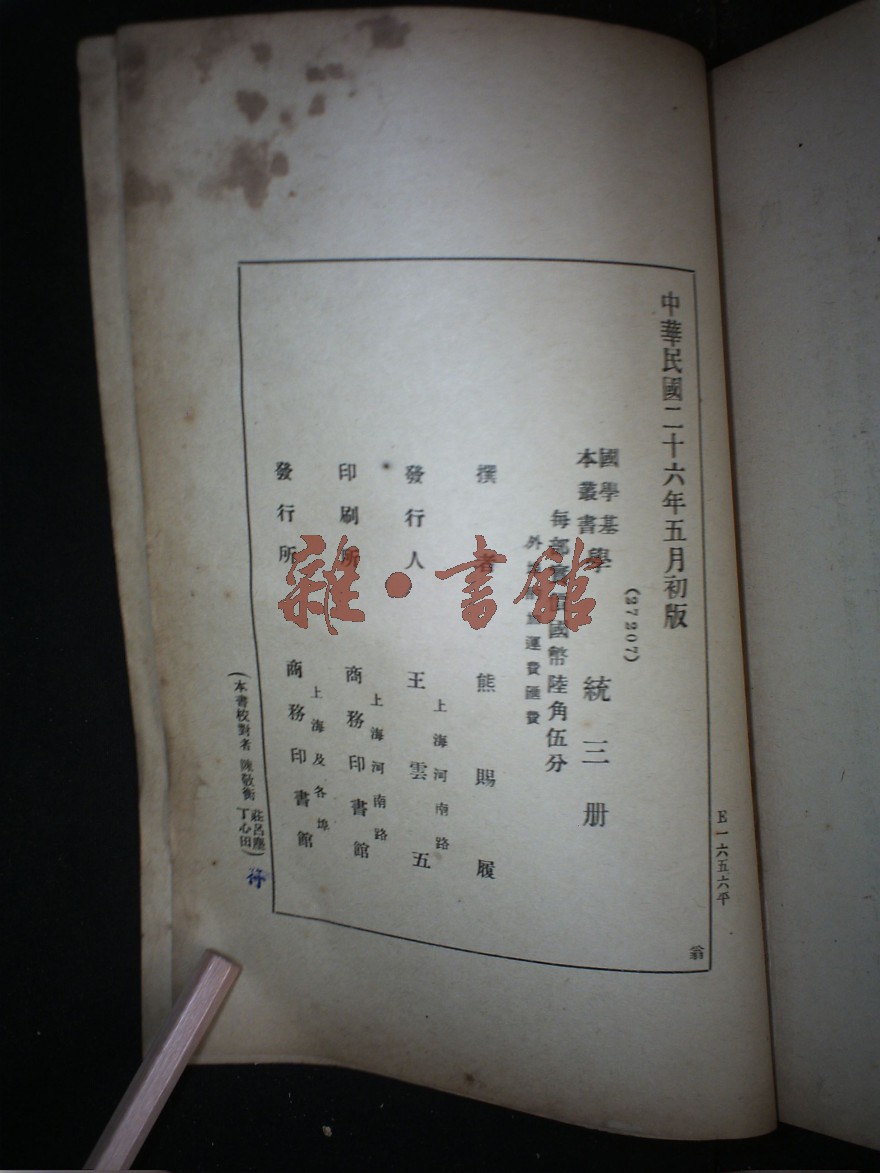 中華民國二十六年五月初版
(27207)
國學基本叢書 學統三册
每部實價國幣陸角伍分
外埠酌加運費匯費
撰者 熊賜履
上海河南路
發行人 王雲五
上海河南路
印刷所 商務印書館
上海及各埠
發行所 商務印書館
(本書校對者 陳敬衡 莊呂塵 丁心田)
E一六五六平
翁
雜·書館